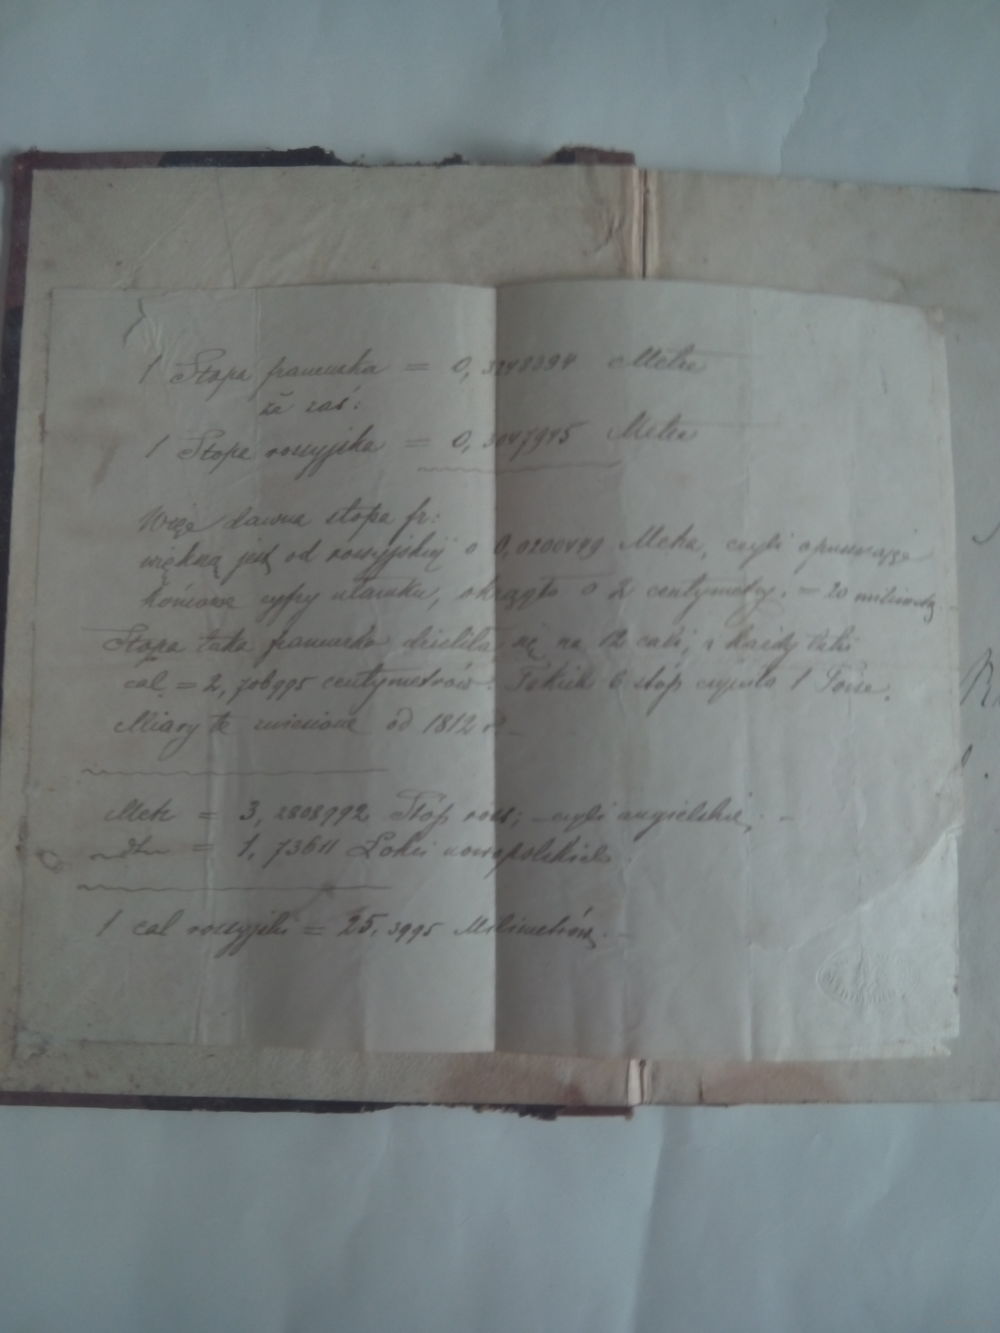 1 Stopa francuska = 0,3248394 Metra
że zaś:
1 Stopa rossyjska = 0,3047945 Metra
Więc dawna stopa fr:
większą jest od rossyjskiej o 0,0200449 Metra, czyli opuszczając
końcowe cyfry ułamku, okrągło o 2 centymetry. = 20 milimetr.
Stopa taka francuska dzieliła się na 12 cali, a każdy taki
cal = 2,706995 centymetrów. Takich 6 stóp czyniło 1 Toise.
Miary te zniesione od 1812 r.
Metr = 3,2808992 Stóp ross; czyli angielskich.
= 1,73611 Łokci nowopolskich.
1 cal rossyjski = 25,3995 Milimetrów.